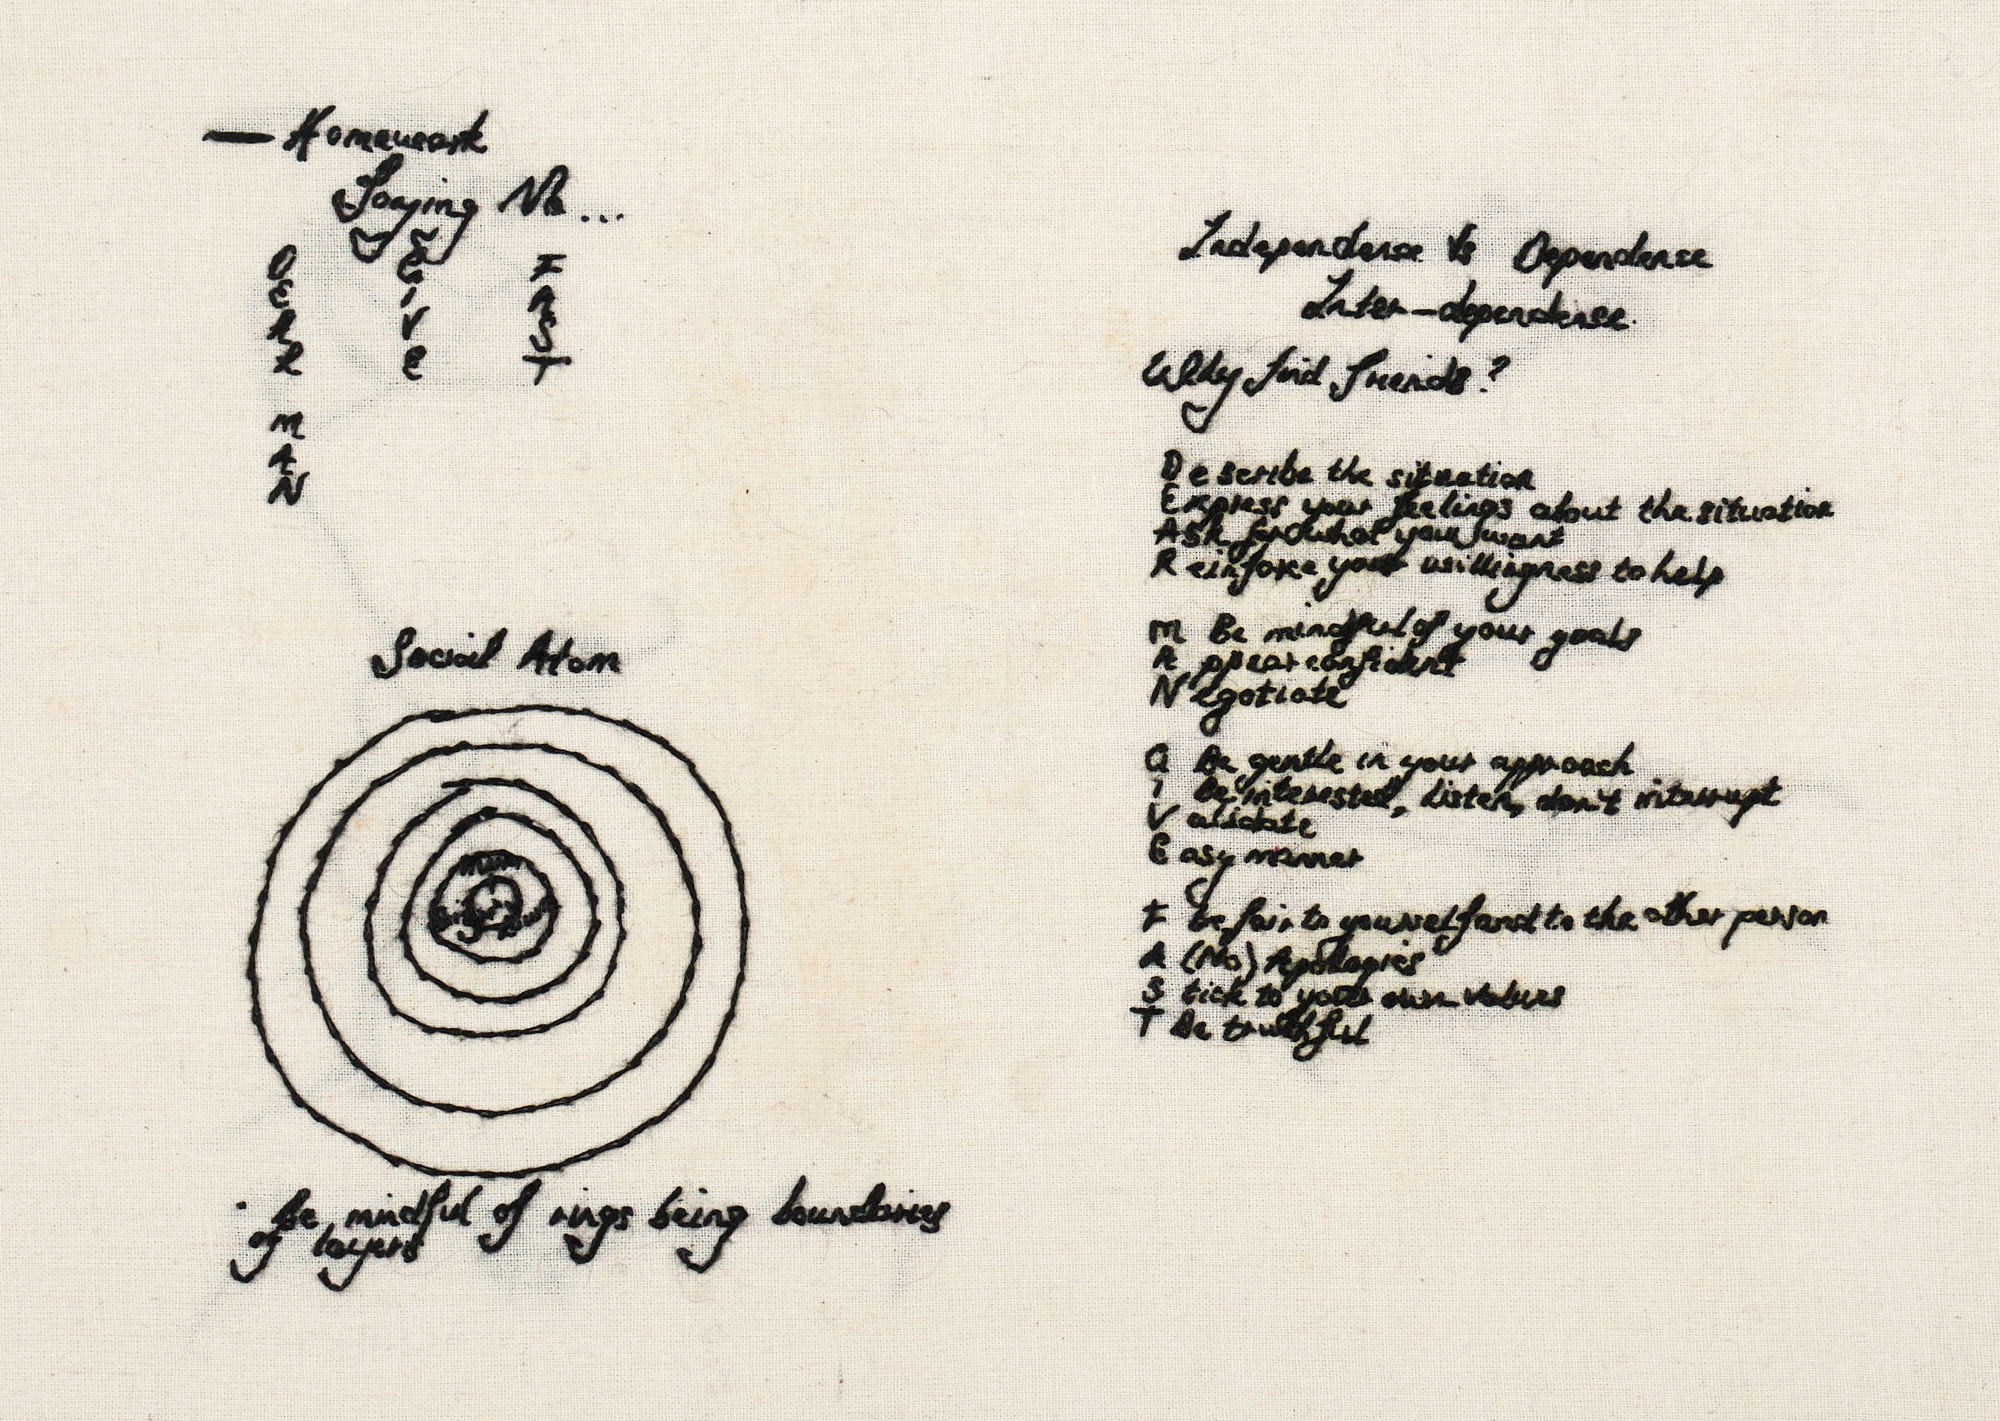 — Homework
Saying No...
D G F
E I A
A V S
R E T
M
A
N
Social Atom
Mum
· Be mindful of rings being boundaries
of layers
Independense Vs Dependense
Inter-dependense.
Why find friends?
Describe the situation
Express your feelings about the situation
Ask for what you want
Reinforce your willingness to help
M Be mindful of your goals
Appear confident
Negotiate
G Be gentle in your approach
I Be interested, listen, don't interrupt
Validate
Easy manner
F be fair to yourself and to the other person
A (No) Apologies
Stick to your own values
T Be truthful